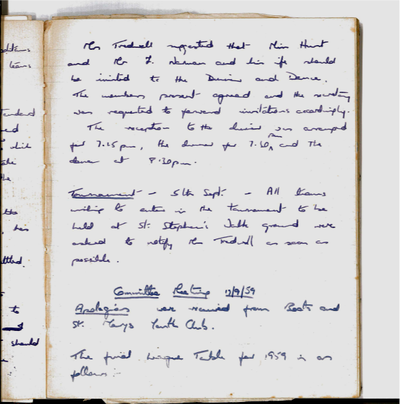 Mr Tredwell suggested that Miss Hunt
and Mr F. Newman and his wife should
be invited to the Dinner and Dance.
The members present agreed and the secretary
was requested to forward invitations accordingly.
The reception to the dinner was arranged
for 7.15pm, the dinner for 7.30pm and the
dance at 8.30pm.
Tournament - 5th Sept. - All teams
wishing to enter in the tournament to be
held at St. Stephen's ground were
asked to notify Mr Tredwell as soon as
possible.
Committee Meeting
Apologies were received from Boots and
St. Mary's Youth Club.
The final League Table for 1959 is as
follows :-
to
should